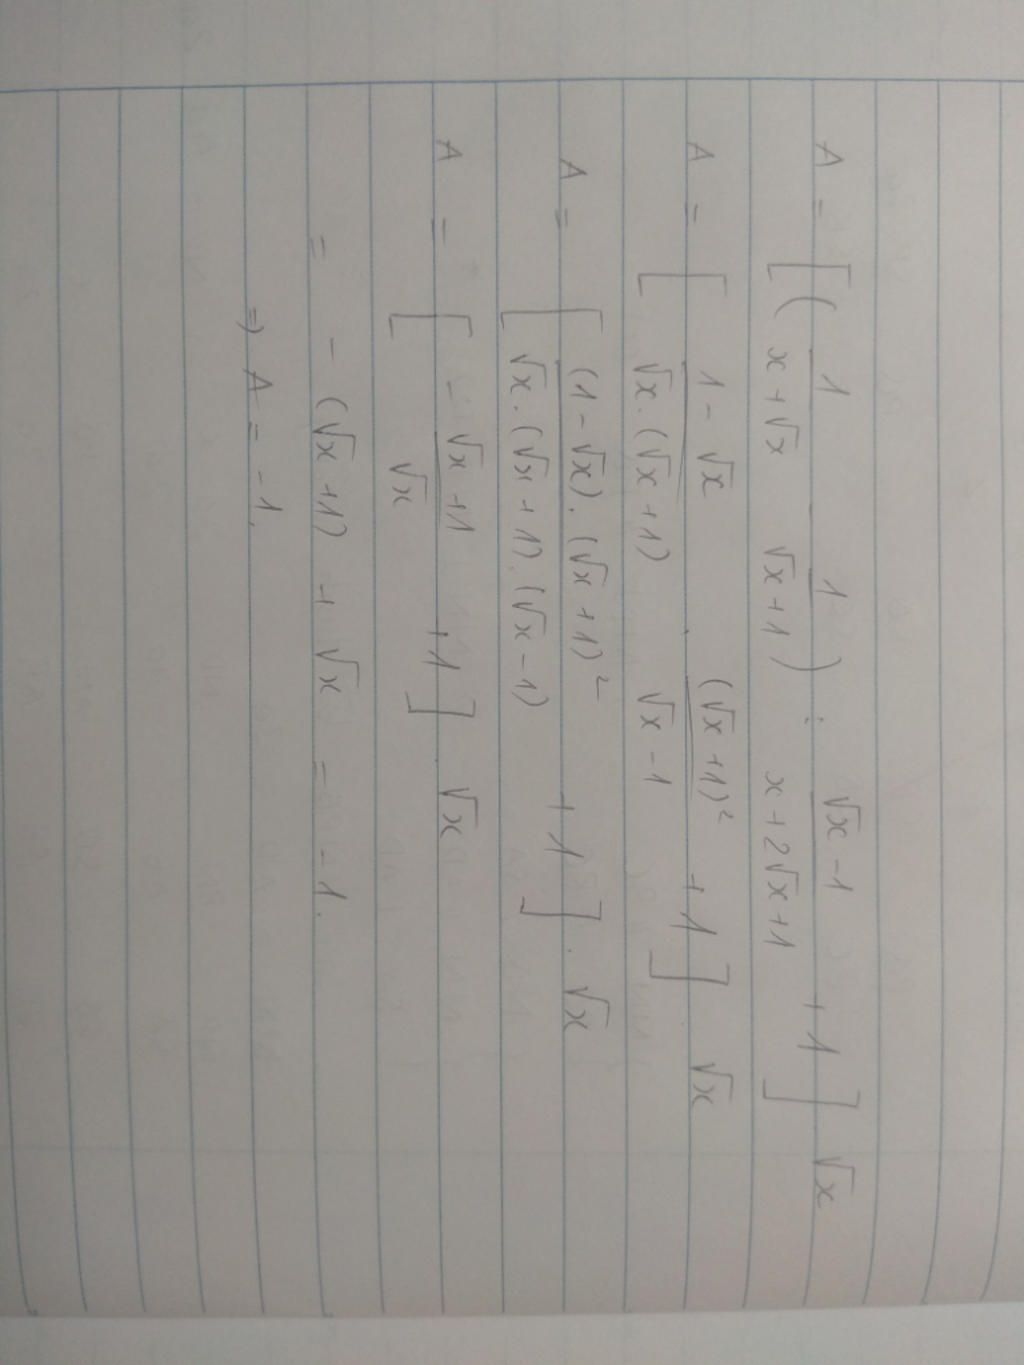 A = [ ( 1/(x+√x) - 1/(√x+1) ) : (√x-1)/(x+2√x+1) + 1 ] √x
A = [ (1-√x)/(√x.(√x+1)) . (√x+1)²/(√x-1) + 1 ] √x
A = [ ((1-√x).(√x+1)²)/(√x.(√x+1).(√x-1)) + 1 ] . √x
A = [ (-√x+1)/√x + 1 ] √x
= -(√x+1) + √x = -1.
=> A = -1.